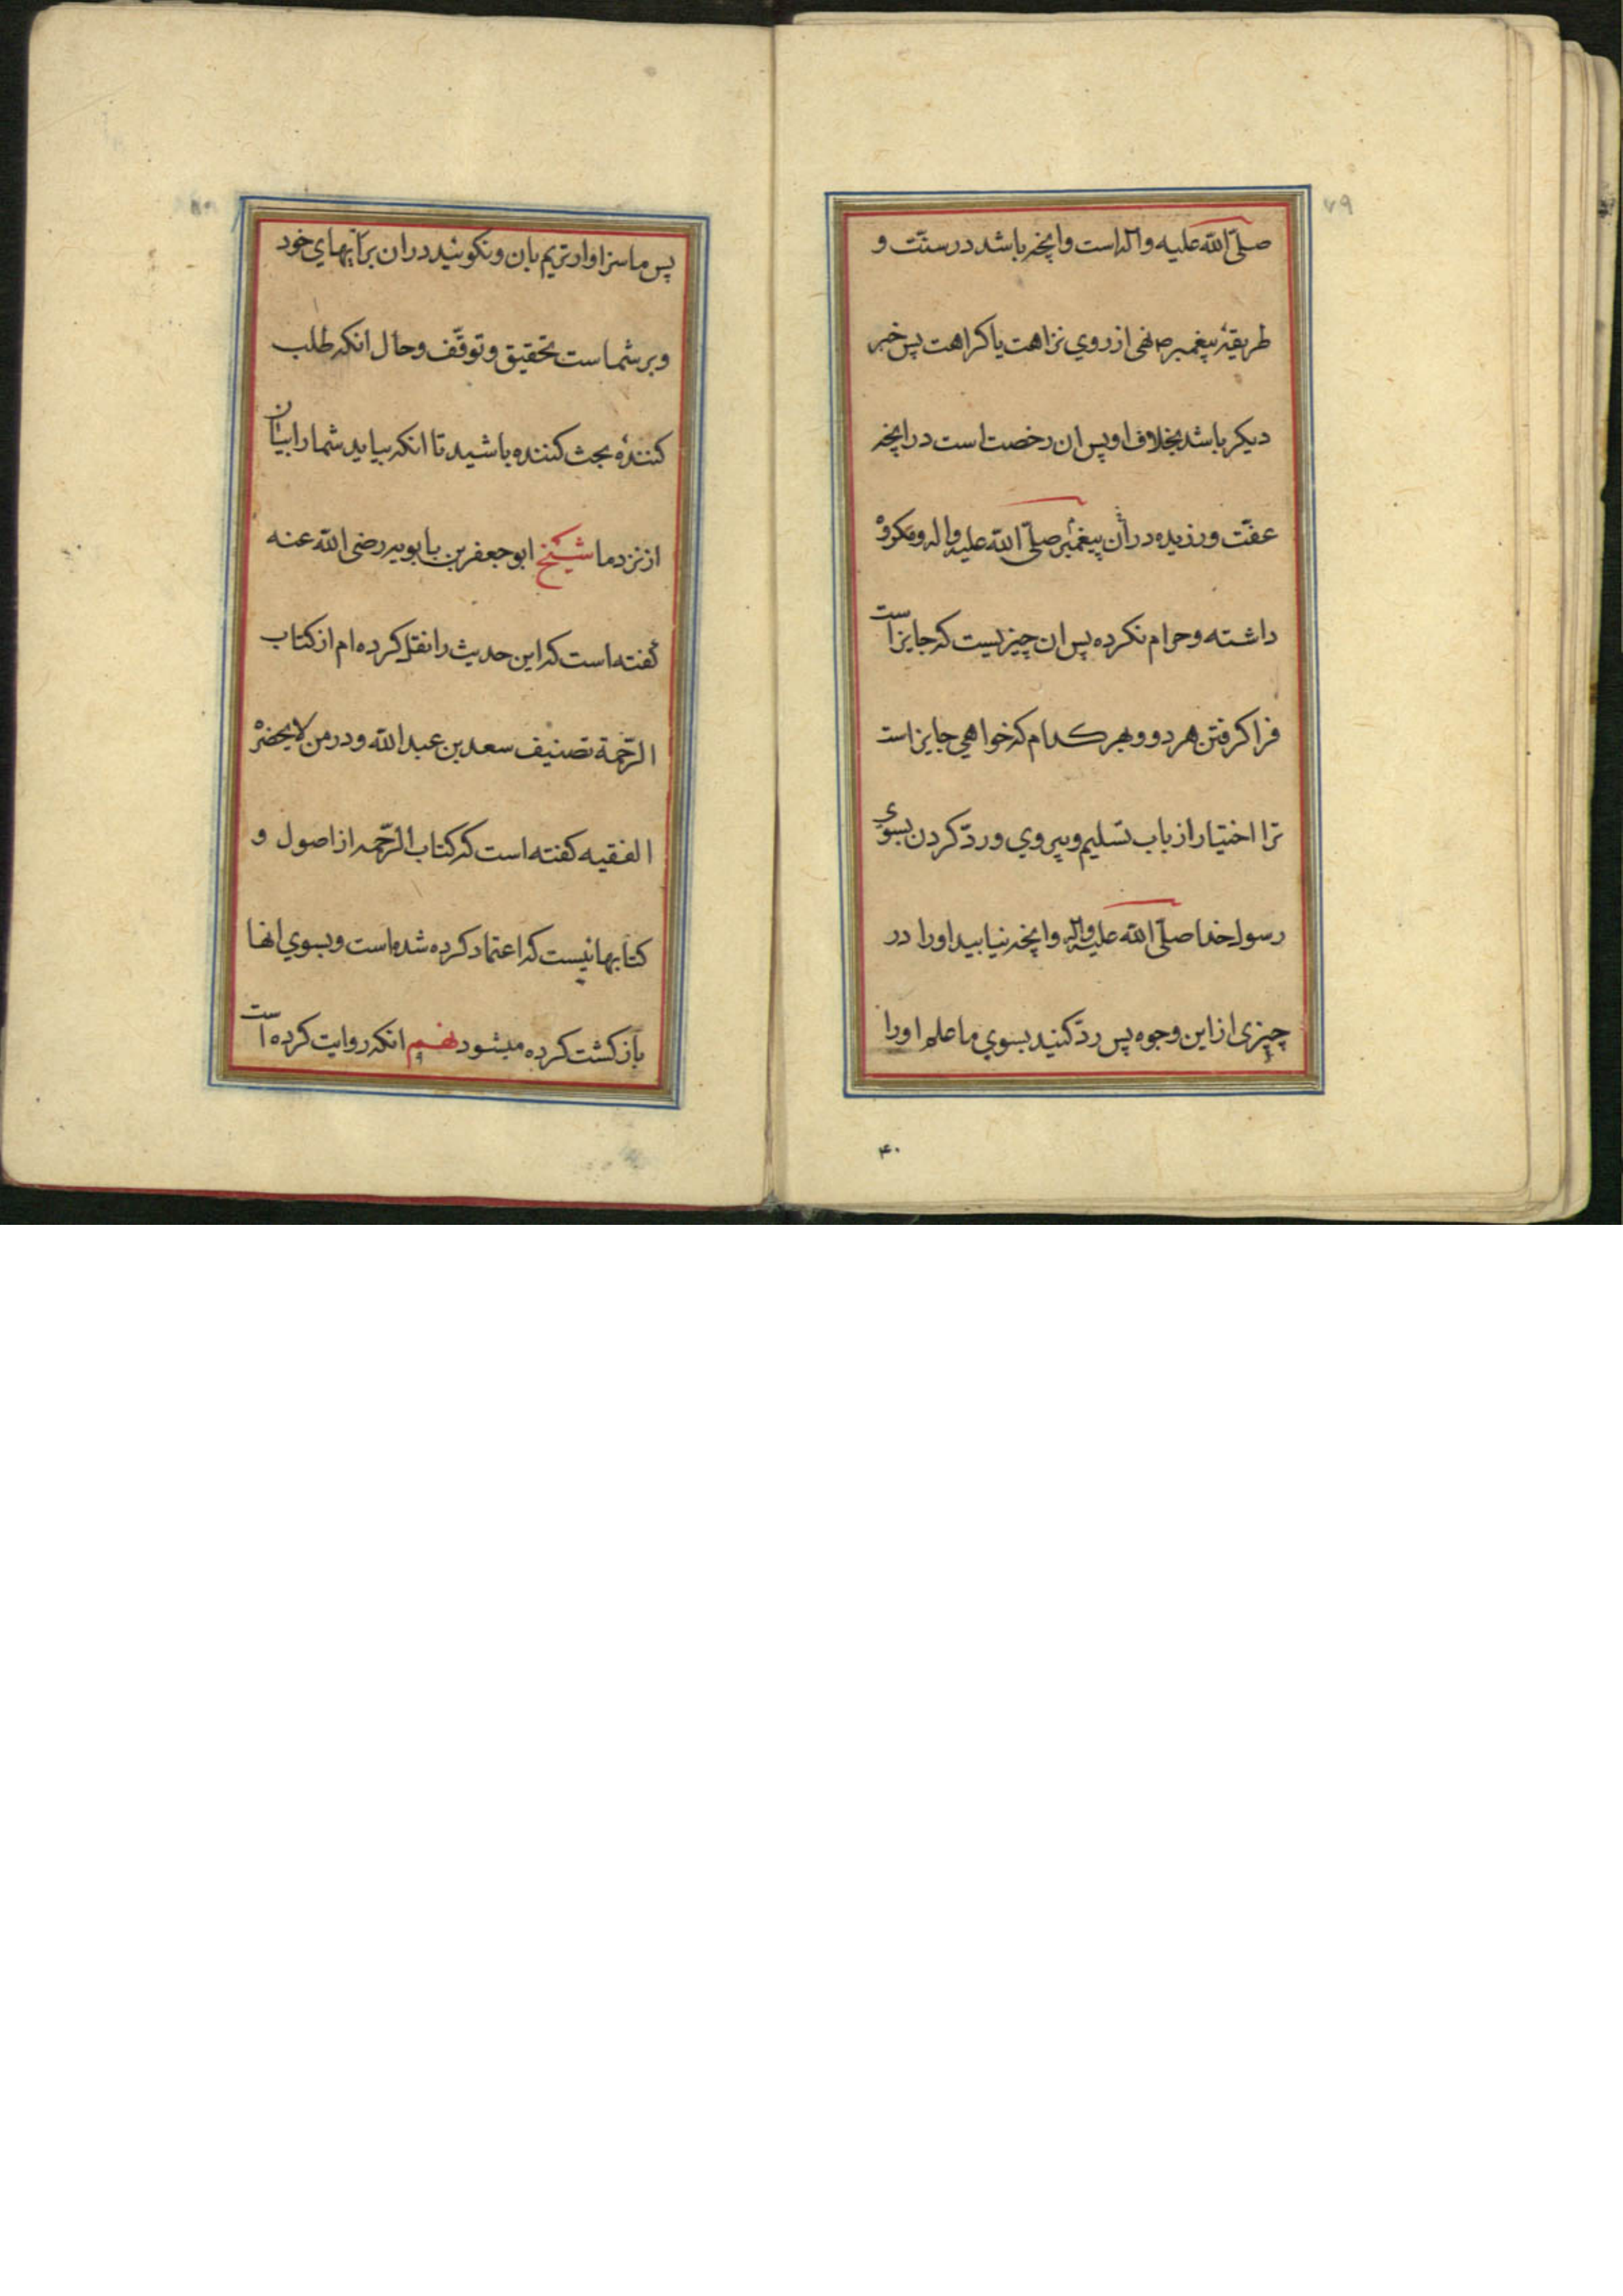 ۷۹
صلّی الله علیه واله است وانچه باشد در سنّت و
طریقهٔ پیغمبر ص نهی از روي نزاهت یا کراهت پس خبر
دیکر باشد بخلاف او پس ان رخصت است در انچه
عفّت ورزیده در آن پیغمبر صلّی الله علیه واله ومکروه
داشته وحرام نکرده پس ان چیزیست که جایز است
فرا کرفتن هر دو و بهر کدام که خواهی جایز است
ترا اختیار از باب تسلیم وپیروي وردّ کردن بسوي
رسولخدا صلّی الله علیه واله وانچه نیابید اورا در
چیزی از این وجوه پس ردّ کنید بسوي ما علم اورا
۴۰
۸۰
پس ما سزاوارتریم بان ونکوئید دران برآیهاي خود
وبر شماست تحقیق وتوقّف وحال انکه طلب
کنندهٔ بحث کننده باشید تا انکه بیاید شما را بیان
از نزد ما شیخ ابو جعفر بن بابویه رضی الله عنه
کفته است که این حدیث را نقل کرده ام از کتاب
الرّحمة تصنیف سعد بن عبد الله ودر من لایحضره
الفقیه کفته است که کتاب الرّحمه از اصول و
کتابهائیست که اعتماد کرده شده است وبسوي انها
بازکشت کرده میشود نهم انکه روایت کرده است